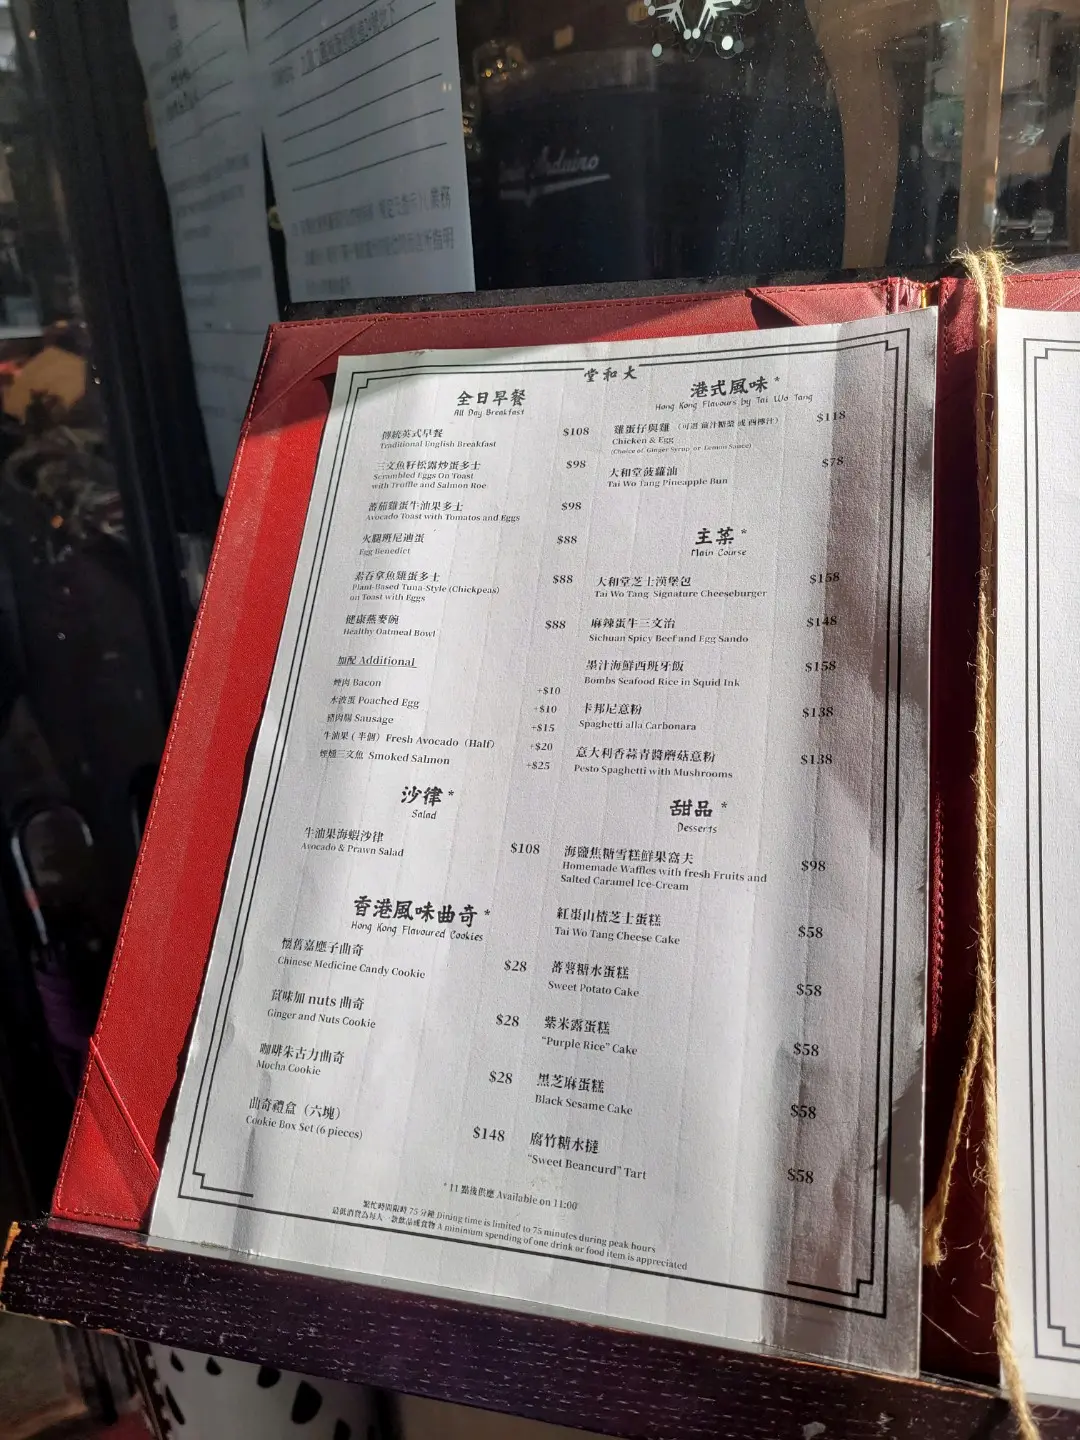 Arduino
大和堂
全日早餐
All Day Breakfast
傳統英式早餐 $108
Traditional English Breakfast
三文魚籽松露炒蛋多士 $98
Scrambled Eggs On Toast
with Truffle and Salmon Roe
蕃茄雞蛋牛油果多士 $98
Avocado Toast with Tomatos and Eggs
火腿班尼迪蛋 $88
Egg Benedict
素吞拿魚雞蛋多士 $88
Plant-Based Tuna-Style (Chickpeas)
on Toast with Eggs
健康燕麥碗 $88
Healthy Oatmeal Bowl
加配 Additional
煙肉 Bacon +$10
水波蛋 Poached Egg +$10
豬肉腸 Sausage +$15
牛油果 ( 半個）Fresh Avocado（Half） +$20
煙燻三文魚 Smoked Salmon +$25
沙律*
Salad
牛油果海蝦沙律 $108
Avocado & Prawn Salad
香港風味曲奇*
Hong Kong Flavoured Cookies
懷舊嘉應子曲奇 $28
Chinese Medicine Candy Cookie
薑味加 nuts 曲奇 $28
Ginger and Nuts Cookie
咖啡朱古力曲奇 $28
Mocha Cookie
曲奇禮盒（六塊） $148
Cookie Box Set (6 pieces)
港式風味*
Hong Kong Flavours by Tai Wo Tang
雞蛋仔與雞 （可選 薑汁糖漿 或 西檸汁） $118
Chicken & Egg
(Choice of Ginger Syrup or Lemon Sauce)
大和堂菠蘿油 $78
Tai Wo Tang Pineapple Bun
主菜*
Main Course
大和堂芝士漢堡包 $158
Tai Wo Tang Signature Cheeseburger
麻辣蛋牛三文治 $148
Sichuan Spicy Beef and Egg Sando
墨汁海鮮西班牙飯 $158
Bombs Seafood Rice in Squid Ink
卡邦尼意粉 $138
Spaghetti alla Carbonara
意大利香蒜青醬蘑菇意粉 $138
Pesto Spaghetti with Mushrooms
甜品*
Desserts
海鹽焦糖雪糕鮮果窩夫 $98
Homemade Waffles with fresh Fruits and
Salted Caramel Ice-Cream
紅棗山楂芝士蛋糕 $58
Tai Wo Tang Cheese Cake
蕃薯糖水蛋糕 $58
Sweet Potato Cake
紫米露蛋糕 $58
"Purple Rice" Cake
黑芝麻蛋糕 $58
Black Sesame Cake
腐竹糖水撻 $58
"Sweet Beancurd" Tart
* 11 點後供應 Available on 11:00
繁忙時間限時 75 分鐘 Dining time is limited to 75 minutes during peak hours
最低消費為每人一款飲品或食物 A minimum spending of one drink or food item is appreciated